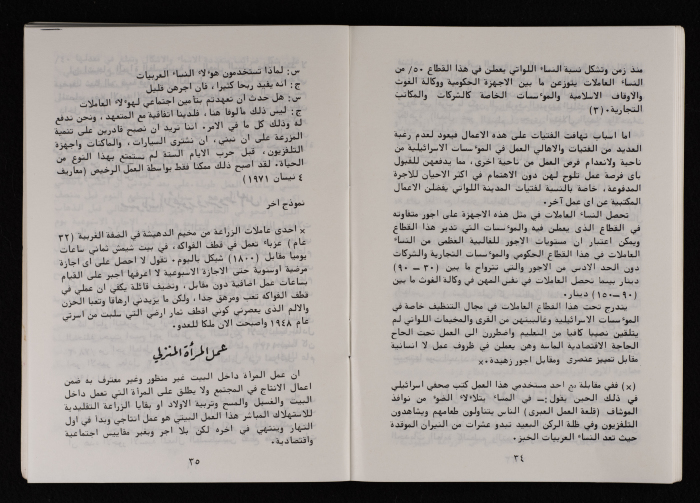 منذ زمن وتشكل نسبة النساء اللواتي يعطن في هذا القطاع ٥٠٪ من
النساء العاملات يتوزعن ما بين الاجهزة الحكومية ووكالة الغوث
والاوقاف الاسلامية والموءسسات الخاصة كالشركات والمكاتب
التجارية. (٣)
اما اسباب تهافت الفتيات على هذه الاعمال فيعود لعدم رغبة
العديد من الفتيات والاهالي العمل في الموءسسات الاسرائيلية من
ناحية ولانعدام فرص العمل من ناحية اخرى، مما يدفعهن للقبول
باى فرصة عمل تلوح لهن دون الاهتمام في اكثر الاحيان للاجرة
المدفوعة، خاصة بالنسبة لفتيات المدينة اللواتي يفضلن الاعمال
المكتبية عن اى عمل آخر.
تحصل النساء العاملات في مثل هذه الاجهزة على اجور متفاوته
في القطاع الذى يعطن فيه والموءسسات التي تدير هذا القطاع
ويمكن اعتبار ان مستويات الاجور للغالبية العظمى من النساء
العاملات في هذا القطاع الحكومي والموءسسات التجارية والشركات
دون الحد الادنى من الاجور والتي تتراوح ما بين (٣٠ — ٩٠)
دينار بينما تحصل العاملات في نفس المهن في وكالة الغوث ما بين
(٩٠—١٥٠) دينار.
يندرج تحت هذا القطاع العاملات في مجال التنظيف خاصة في
الموءسسات الاسرائيلية وغالبيتهن من القرى والمخيمات اللواتي لم
يتلقين نصيبا كافيا من التعليم واضطررن الى العمل تحت الحاح
الحاجة الاقتصادية الماسة وهن يعطن في ظروف عمل لا انسانية
مقابل تمييز عنصرى ومقابل اجور زهيدة.×
(×) ففي مقابلة مع احد مستخدمي هذا العمل كتب صحفي اسرائيلي
في ذلك الحين يقول:ـ في المساء يتلاءلاء الضوء من نوافذ
الموشاف (قلعة العمل العبرى) الناس يتناولون طعامهم ويشاهدون
التلفزيون وفي ظلة الركن البعيد تبدو عشرات من النيران الموقدة
حيث تعد النساء العربيات الخبز.
٣٤
س: لماذا تستخدمون هوءلاء النساء العربيات
ج: انه يفيد ربحا كثيرا، فان اجرهن قليل
س: هل حدث ان تعهدتم بتأمين اجتماعي لهوءلاء العاملات
ج: ليس ذلك مألوفا هنا، فلدينا اتفاقية مع المتعهد، ونحن ندفع
له وذلك كل ما في الامر. اننا نريد ان نصبح قادرين على تنمية
المزرعة على ان نبني، ان نشترى السيارات، والماكنات واجهزة
التلفزيون، قبل حرب الايام الستة لم نستمتع بهذا النوع من
الحياة، لقد اصبح ذلك ممكنا فقط بواسطة العمل الرخيص (معاريف
٤ نيسان ١٩٧١)
نموذج اخر
× احدى عاملات الزراعة من مخيم الدهيشة في الضفة الغربية (٣٢
عام) عزباء تعمل في قطف الفواكه، في بيت شيمش ثماني ساعات
يوميا مقابل (١٨٠٠) شيكل باليوم. تقول لا احصل على اى اجازة
مرضية اوسنوية حتى الاجازة الاسبوعية لا اعرفها اجبر على القيام
بساعات عمل اضافية دون مقابل، وتضيف قائلة يكفي ان عملي في
قطف الفواكه تعب ومرهق جدا، ولكن ما يزيدني ارهاقا وتعبا الحزن
والالم الذى يعصرني كوني اقطف ثمار ارضي التي سلبت من اسرتي
عام ١٩٤٨ واصبحت الان ملكا للعدو.
عمل المرأة المنزلي
ان عمل المرأة داخل البيت غير منظور وغير معترف به ضمن
اعمال الانتاج في المجتمع ولا يطلق على المرأة التي تعمل داخل
البيت والغسيل والمسح وتربية الاولاد او بقايا الزراعة التقليدية
للاستهلاك المباشر هذا العمل البيتي هو عمل انتاجي ويبدأ في اول
النهار وينتهي في اخره لكن بلا اجر وبغير مقاييس اجتماعية
واقتصادية.
٣٥